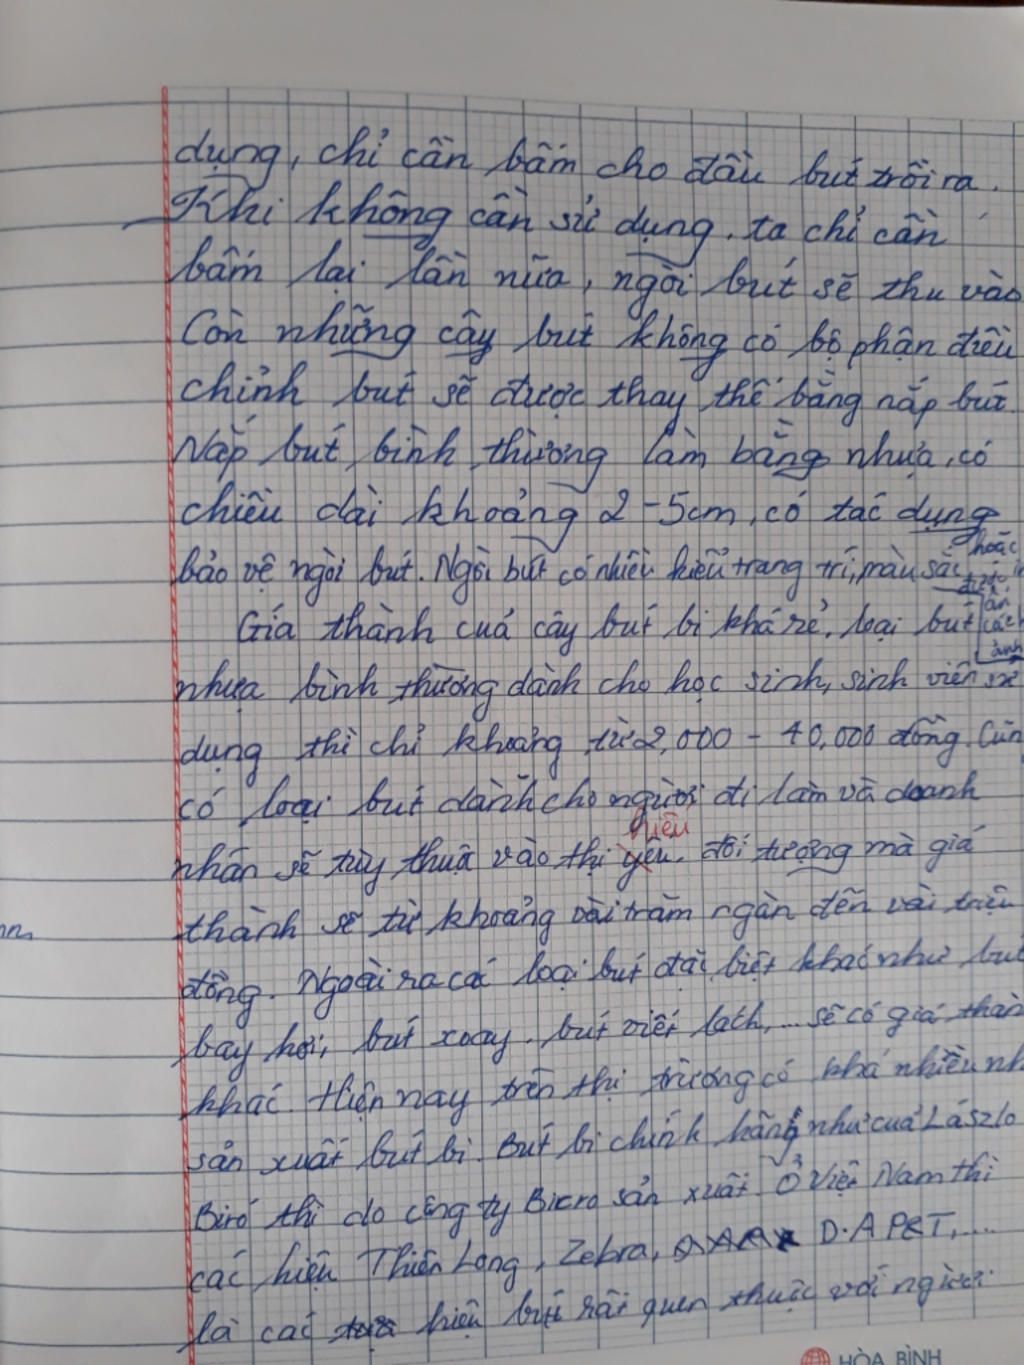 dụng, chỉ cần bấm cho đầu bút trồi ra.
Khi không cần sử dụng, ta chỉ cần
bấm lại lần nữa, ngòi bút sẽ thu vào
Còn những cây bút không có bộ phận điều
chỉnh bút sẽ được thay thế bằng nắp bút.
Nắp bút bình thường làm bằng nhựa, có
chiều dài khoảng 2-5cm, có tác dụng
bảo vệ ngòi bút. Ngòi bút có nhiều kiểu trang trí, màu sắc
hoặc
Giá thành cuả cây bút bi khá rẻ, loại bút
nhựa bình thường dành cho học sinh, sinh viên sử
dụng thì chỉ khoảng từ 2,000 - 40,000 đồng. Cũn
có loại bút dành cho người đi làm và doanh
hiếu
nhân sẽ tùy thuộ vào thị yếu, đối tượng mà giá
thành sẽ từ khoảng vài trăm ngàn đến vài triệu
đồng. Ngoài ra các loại bút đặc biệt khác như bút
bay hơi, bút xoay, bút viết lách,... sẽ có giá thàn
khác. Hiện nay trên thị trường có khá nhiều nh
sản xuất bút bi. Bút bi chính hãng như cuả László
Biró thì do công ty Bicro sản xuất. Ở Việt Nam thì
các hiệu Thiên Long, Zebra, D.A PET,....
là các hiệu bút rất quen thuộc với người
HÒA BÌNH